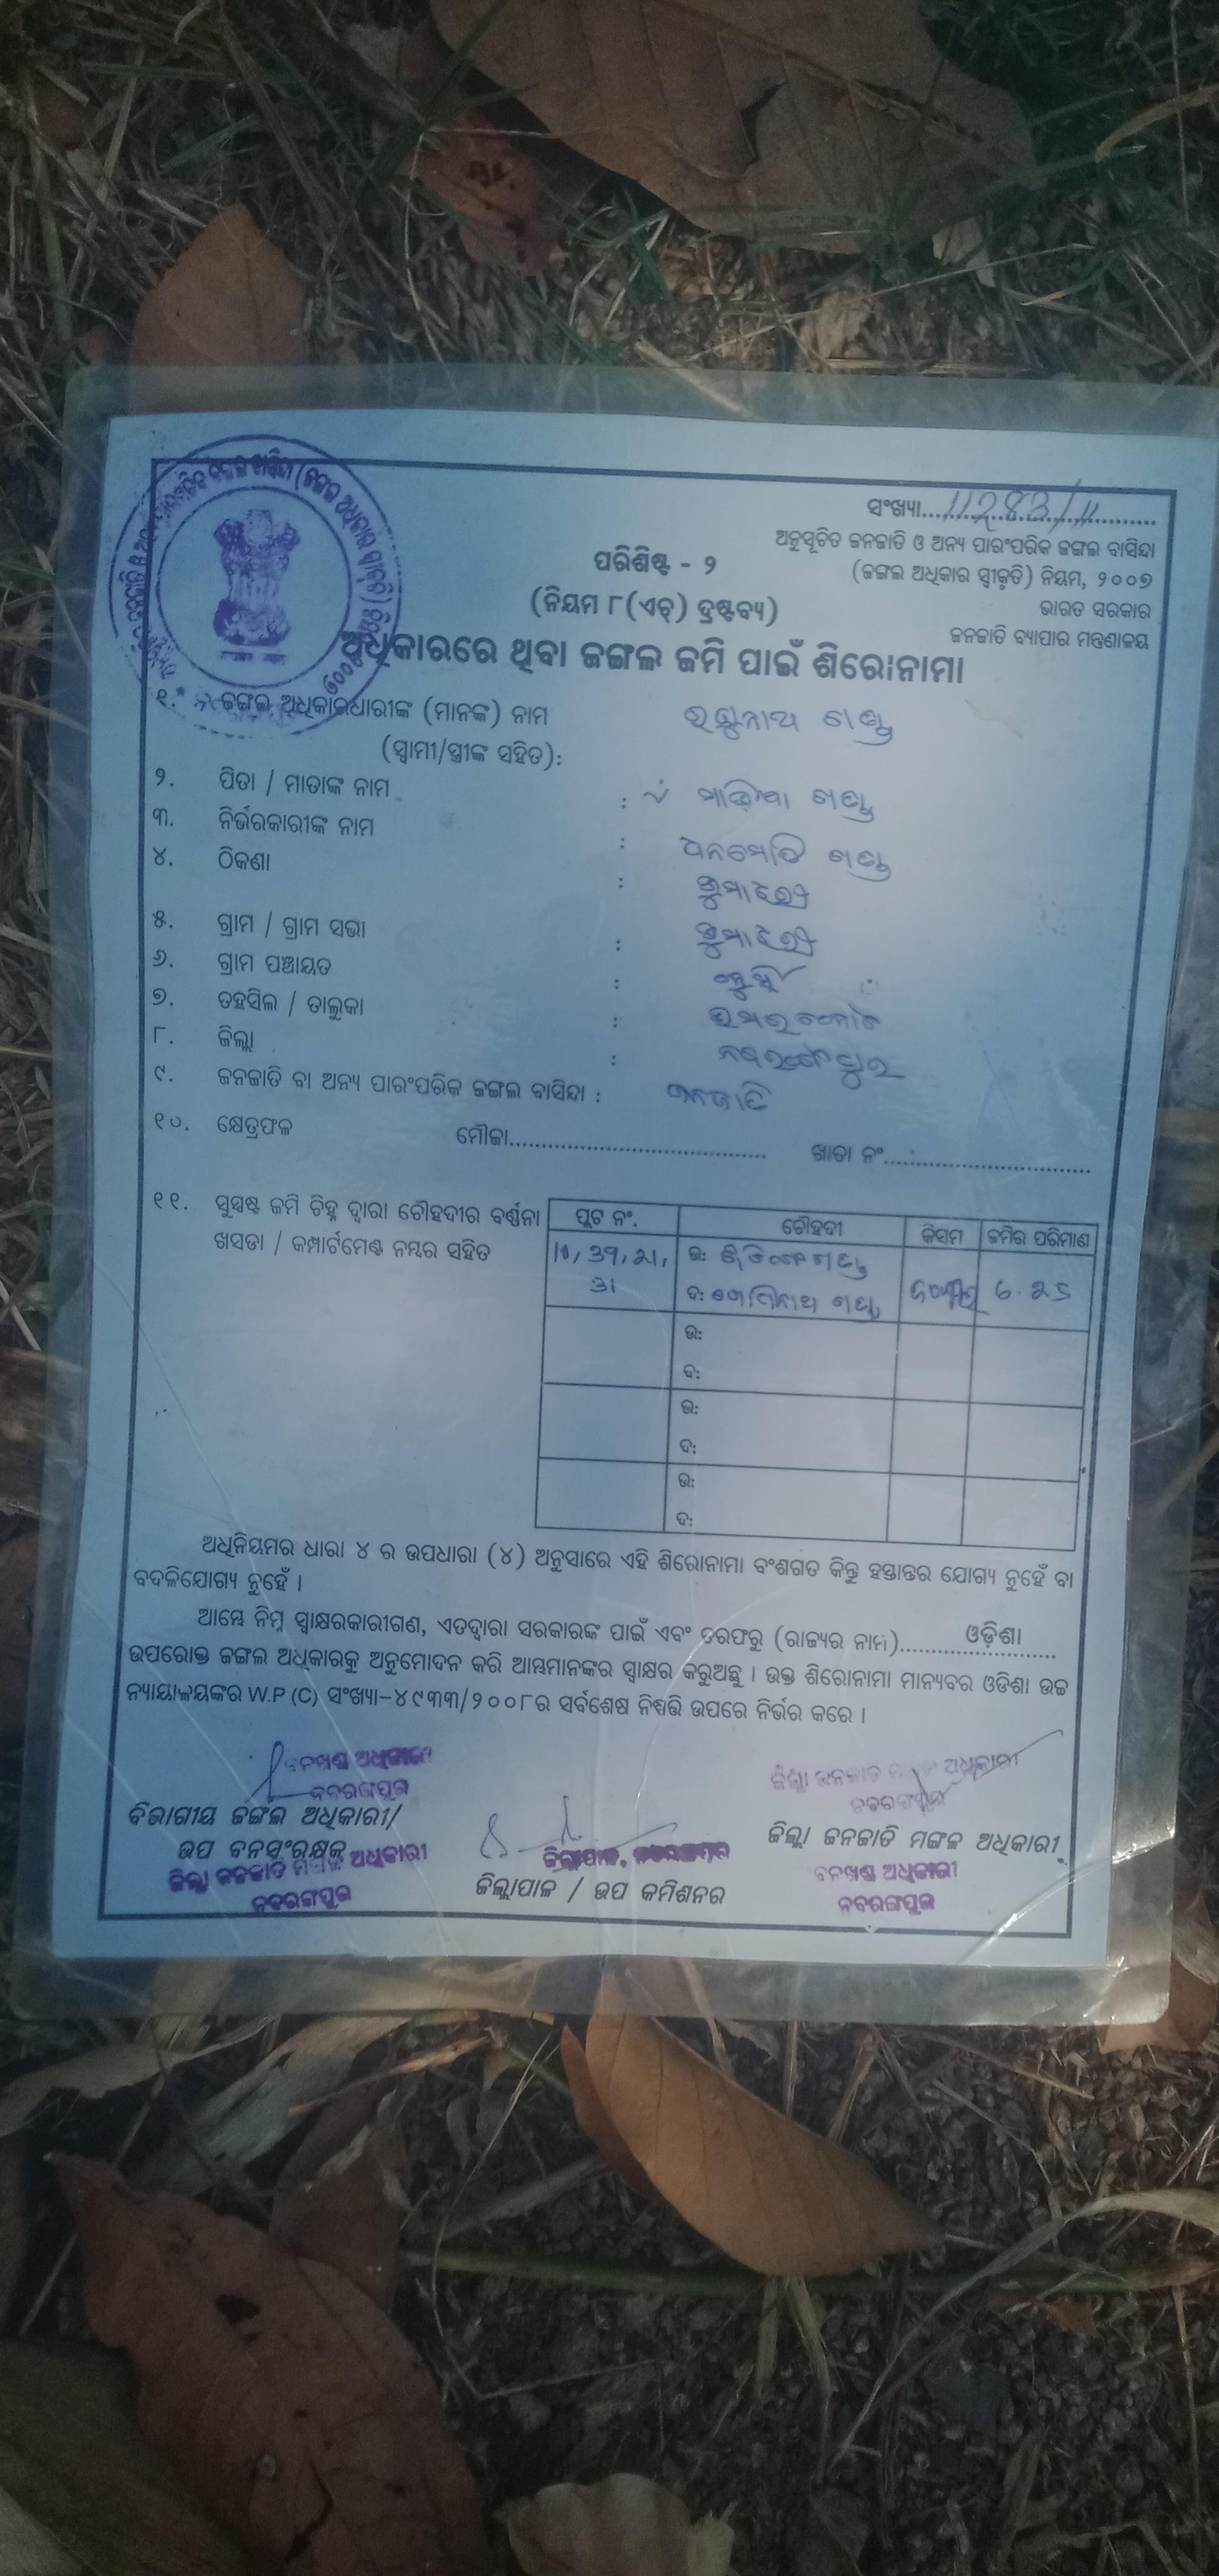 ସଂଖ୍ୟା..... 11283/11
ଅନୁସୂଚିତ ଜନଜାତି ଓ ଅନ୍ୟ ପାରଂପରିକ ଜଙ୍ଗଲ ବାସିନ୍ଦା
(ଜଙ୍ଗଲ ଅଧିକାର ସ୍ୱୀକୃତି) ନିୟମ, ୨୦୦୭
ଭାରତ ସରକାର
ଜନଜାତି ବ୍ୟାପାର ମନ୍ତ୍ରଣାଳୟ
ପରିଶିଷ୍ଟ - ୨
(ନିୟମ ୮(ଏଚ୍) ଦ୍ରଷ୍ଟବ୍ୟ)
ଅଧିକାରରେ ଥିବା ଜଙ୍ଗଲ ଜମି ପାଇଁ ଶିରୋନାମା
୧. ଜଙ୍ଗଲ ଅଧିକାରଧାରୀଙ୍କ (ମାନଙ୍କ) ନାମ ରଘୁନାଥ ଗଣ୍ଡ
(ସ୍ୱାମୀ/ସ୍ତ୍ରୀଙ୍କ ସହିତ):
୨. ପିତା / ମାତାଙ୍କ ନାମ : ଗଣ୍ଡ
୩. ନିର୍ଭରକାରୀଙ୍କ ନାମ : ଗଣ୍ଡ
୪. ଠିକଣା :
୫. ଗ୍ରାମ / ଗ୍ରାମ ସଭା :
୬. ଗ୍ରାମ ପଞ୍ଚାୟତ :
୭. ତହସିଲ / ତାଲୁକା : ଉମରକୋଟ
୮. ଜିଲ୍ଲା : ନବରଙ୍ଗପୁର
୯. ଜନଜାତି ବା ଅନ୍ୟ ପାରଂପରିକ ଜଙ୍ଗଲ ବାସିନ୍ଦା : ଜନଜାତି
୧୦. କ୍ଷେତ୍ରଫଳ ମୌଜା..... ଖାତା ନଂ.....
୧୧. ସୁସ୍ପଷ୍ଟ ଜମି ଚିହ୍ନ ଦ୍ୱାରା ଚୌହଦୀର ବର୍ଣ୍ଣନା
ଖସଡା / କମ୍ପାର୍ଟମେଣ୍ଟ ନମ୍ବର ସହିତ
ପ୍ଲଟ ନଂ. ଚୌହଦୀ କିସମ ଜମିର ପରିମାଣ
ଉ: ଗଣ୍ଡ
ଦ: ଗୋପିନାଥ ଗଣ୍ଡ
ଉ:
ଦ:
ଉ:
ଦ:
ଉ:
ଦ:
ଅଧିନିୟମର ଧାରା ୪ ର ଉପଧାରା (୪) ଅନୁସାରେ ଏହି ଶିରୋନାମା ବଂଶଗତ କିନ୍ତୁ ହସ୍ତାନ୍ତର ଯୋଗ୍ୟ ନୁହେଁ ବା
ବଦଳିଯୋଗ୍ୟ ନୁହେଁ ।
ଆମ୍ଭେ ନିମ୍ନ ସ୍ୱାକ୍ଷରକାରୀଗଣ, ଏତଦ୍ୱାରା ସରକାରଙ୍କ ପାଇଁ ଏବଂ ତରଫରୁ (ରାଜ୍ୟର ନାମ)..... ଓଡ଼ିଶା
ଉପରୋକ୍ତ ଜଙ୍ଗଲ ଅଧିକାରକୁ ଅନୁମୋଦନ କରି ଆମ୍ଭମାନଙ୍କର ସ୍ୱାକ୍ଷର କରୁଅଛୁ । ଉକ୍ତ ଶିରୋନାମା ମାନ୍ୟବର ଓଡିଶା ଉଚ୍ଚ
ନ୍ୟାୟାଳୟଙ୍କର W.P (C) ସଂଖ୍ୟା-୪୯୩୩/୨୦୦୮ର ସର୍ବଶେଷ ନିଷ୍ପତ୍ତି ଉପରେ ନିର୍ଭର କରେ ।
ବନଖଣ୍ଡ ଅଧିକାରୀ
ନବରଙ୍ଗପୁର
ବିଭାଗୀୟ ଜଙ୍ଗଲ ଅଧିକାରୀ/
ଉପ ବନସଂରକ୍ଷକ
ଜିଲ୍ଲା ଜନଜାତି ମଙ୍ଗଳ ଅଧିକାରୀ
ନବରଙ୍ଗପୁର
ଜିଲ୍ଲାପାଳ, ନବରଙ୍ଗପୁର
ଜିଲ୍ଲାପାଳ / ଉପ କମିଶନର
ଜିଲ୍ଲା ଜନଜାତି ମଙ୍ଗଳ ଅଧିକାରୀ
ନବରଙ୍ଗପୁର
ଜିଲ୍ଲା ଜନଜାତି ମଙ୍ଗଳ ଅଧିକାରୀ
ବନଖଣ୍ଡ ଅଧିକାରୀ
ନବରଙ୍ଗପୁର